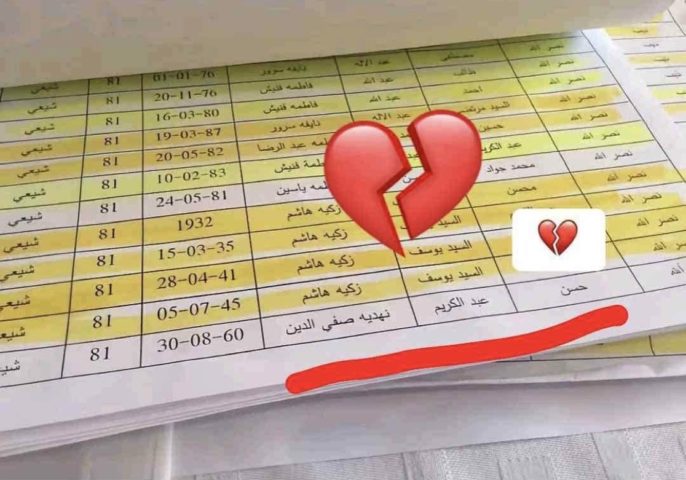 نصر الله مصطفى عبد الاله نايفه سرور 01-01-76 81 شيعي
نصر الله عبد الله فاطمه قنيش 20-11-76 81 شيعي
نصر الله احمد عبد الله فاطمه قنيش 16-03-80 81 شيعي
نصر الله السيد مرتضى عبد الاله نايفه سرور 19-03-87 81 شيعي
نصر الله حسين عبد الرضا 20-05-82 81 شيعي
نصر الله عبد الكريم قنيش 10-02-83 81 شيعي
نصر الله محمد جواد ياسين 24-05-81 81 شيعي
نصر الله محسن السيد زكيه هاشم 1932 81 شيعي
نصر الله السيد يوسف زكيه هاشم 15-03-35 81 شيعي
نصر الله السيد يوسف زكيه هاشم 28-04-41 81 شيعي
نصر الله السيد يوسف زكيه هاشم 05-07-45 81 شيعي
نصر الله حسن عبد الكريم نهديه صفي الدين 30-08-60 81